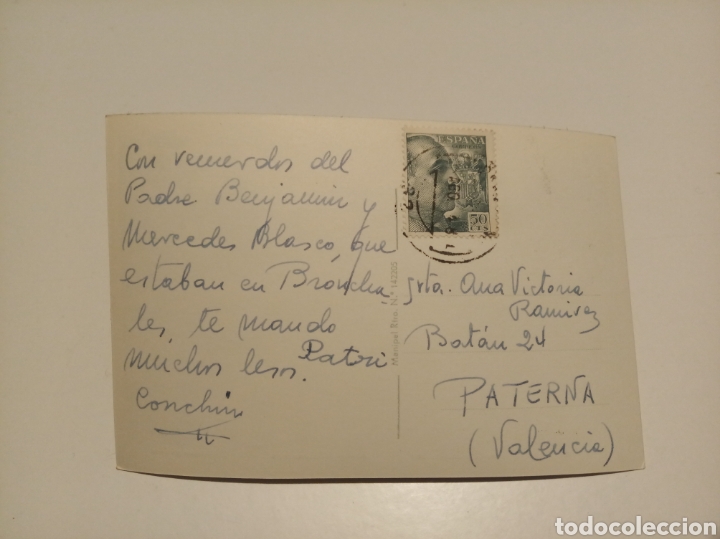 Con recuerdos del
Padre Benjamin y
Mercedes Blasco, que
estaban en Broncha
les, te mando
muchos besos. Patri
Conchin
ESPAÑA
50
CTS
Manipel Rtvo. N.° 142205
Srta. Ana Victoria
Ramirez
Batán 24
PATERNA
(Valencia)
todocoleccion